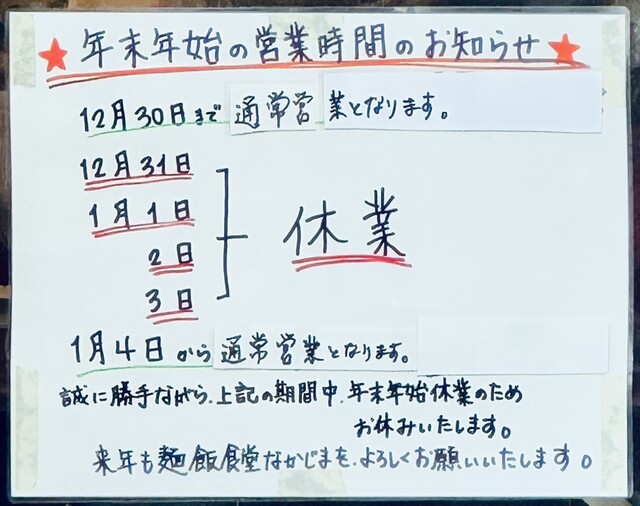 ★年末年始の営業時間のお知らせ★
12月30日まで通常営業となります。
12月31日
1月1日
2日
3日
休業
1月4日から通常営業となります。
誠に勝手ながら、上記の期間中、年末年始休業のため
お休みいたします。
来年も麺飯食堂なかじまを、よろしくお願いいたします。